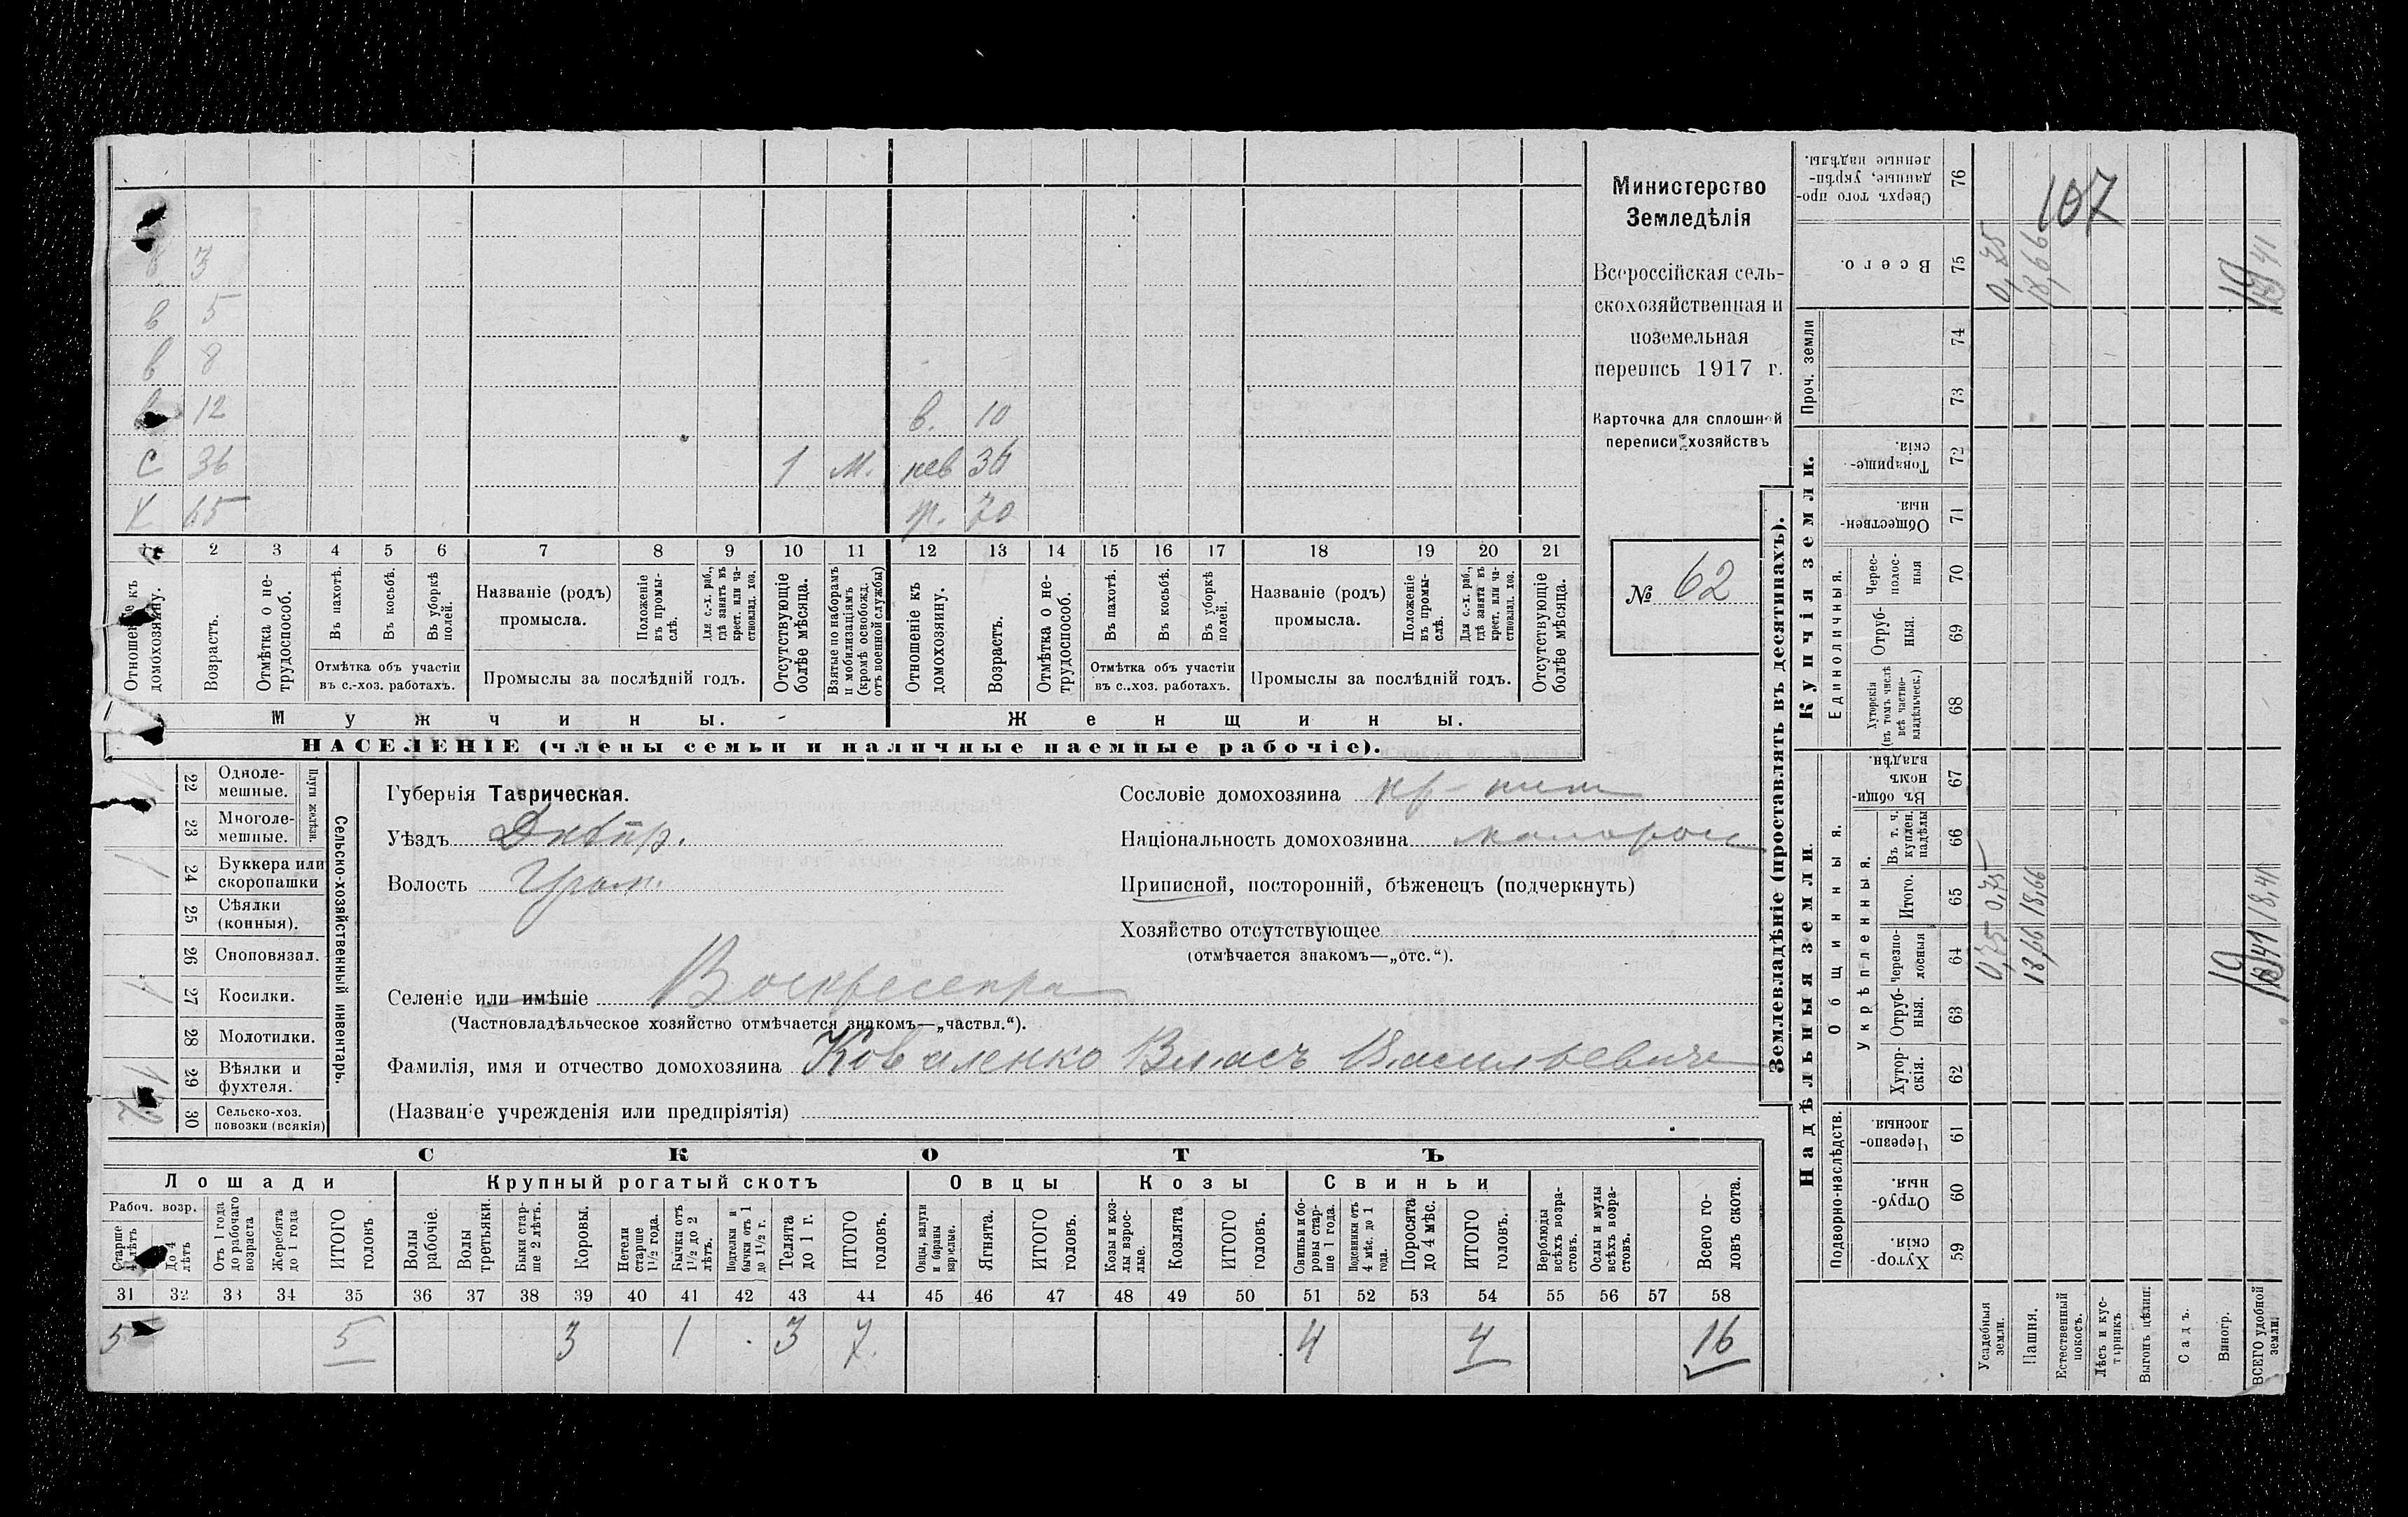 в 3
в 5
в 8
в 12 в. 10
С 36 1 М. нев 36
Х 65 ж. 70
1 2 3 4 5 6 7 8 9 10 11 12 13 14 15 16 17 18 19 20 21
Отношеніе къ домохозяину.
Возрастъ.
Отмѣтка о нетрудоспособ.
Въ пахотѣ.
Въ косьбѣ.
Въ уборкѣ полей.
Отмѣтка объ участіи
въ с.-хоз. работахъ.
Названіе (родъ)
промысла.
Положеніе въ промыслѣ.
Для с.-х. раб., гдѣ занятъ въ крест. или частновлад. хоз.
Промыслы за послѣдній годъ.
Отсутствующіе болѣе мѣсяца.
Взятые по наборамъ и мобилизаціямъ (кромѣ освобожд. отъ военной службы)
Отношеніе къ домохозяину.
Возрастъ.
Отмѣтка о нетрудоспособ.
Въ пахотѣ.
Въ косьбѣ.
Въ уборкѣ полей.
Отмѣтка объ участіи
въ с.-хоз. работахъ.
Названіе (родъ)
промысла.
Положеніе въ промыслѣ.
Для с.-х. раб., гдѣ занята въ крест. или частновлад. хоз.
Промыслы за послѣдній годъ.
Отсутствующіе болѣе мѣсяца.
Мужчины. Женщины.
НАСЕЛЕНІЕ (члены семьи и наличные наемные рабочіе).
Министерство
Земледѣлія
Всероссійская сель-
скохозяйственная и
поземельная
перепись 1917 г.
Карточка для сплошной
переписи хозяйствъ
№ 62
Сельско-хозяйственный инвентарь.
Плуги желѣзн.
22 Одноле-
мешные.
23 Многоле-
мешные.
1 24 Буккера или
скоропашки
25 Сѣялки
(конныя).
26 Сноповязал.
1 27 Косилки.
28 Молотилки.
1 29 Вѣялки и
фухтеля.
2 30 Сельско-хоз.
повозки (всякія)
Губернія Таврическая.
Уѣздъ Днѣпр.
Волость
Селеніе или имѣніе
(Частновладѣльческое хозяйство отмѣчается знакомъ—„частвл.“).
Фамилія, имя и отчество домохозяина Коваленко Власъ Васильевичъ
(Названіе учрежденія или предпріятія)
Сословіе домохозяина
Національность домохозяина малорос
Приписной, посторонній, бѣженецъ (подчеркнуть)
Хозяйство отсутствующее
(отмѣчается знакомъ—„отс.“).
СКОТЪ
Лошади Крупный рогатый скотъ Овцы Козы Свиньи
Рабоч. возр.
Старше 4 лѣтъ
До 4 лѣтъ
Отъ 1 года до рабочаго возраста
Жеребята до 1 года
ИТОГО головъ
Волы рабочіе.
Волы третьяки.
Быки старше 2 лѣтъ.
Коровы.
Нетели старше 1½ года.
Бычки отъ 1½ до 2 лѣтъ.
Подтелки и бычки отъ 1 до 1½ г.
Телята до 1 г.
ИТОГО головъ.
Овцы, валухи и бараны взрослые.
Ягнята.
ИТОГО головъ.
Козы и козлы взрослые.
Козлята
ИТОГО головъ.
Свиньи и боровы старше 1 года.
Подсвинки отъ 4 мѣс. до 1 года.
Поросята до 4 мѣс.
ИТОГО головъ.
Верблюды всѣхъ возрастовъ.
Ослы и мулы всѣхъ возрастовъ.
Всего головъ скота.
31 32 33 34 35 36 37 38 39 40 41 42 43 44 45 46 47 48 49 50 51 52 53 54 55 56 57 58
5 5 3 1 3 7. 4 4 16
Землевладѣніе (проставлять въ десятинахъ).
Купчія земли.
Надѣльныя земли.
107
76 Сверхъ того проданные, укрѣпленные надѣлы.
75 Всего. 0,75 18,66 19 41
Проч. земли
74
73
72 Товарищескія.
71 Общественныя.
Единоличныя.
70 Чересполосныя
69 Отрубныя.
68 Хуторскія (въ томъ числѣ всѣ частновладѣльческ.)
Общинныя.
67 Въ общинномъ владѣн.
Укрѣпленныя.
66 Въ т. ч. куплен. надѣлы
65 Итого. 0,75 18,66 18,41
64 Черезполосныя 0,75 18,66 19 41
63 Отрубныя.
62 Хуторскія.
Подворно-наслѣдств.
61 Черезполосныя.
60 Отрубныя.
59 Хуторскія.
Усадебныя земли.
Пашня.
Естественный покосъ.
Лѣсъ и кустарникъ
Выгонъ цѣлин.
Садъ.
Виногр.
ВСЕГО удобной земли.